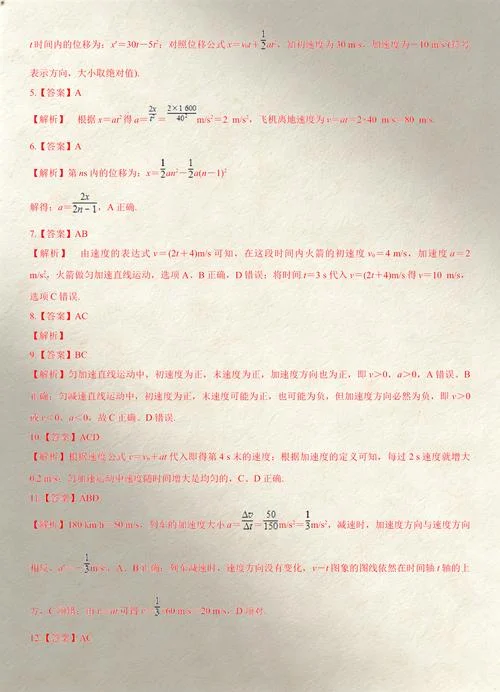 t时间内的位移为：x′＝30t－5t²；对照位移公式x＝v₀t＋1/2at²，知初速度为30 m/s，加速度为－10 m/s²(符号
表示方向，大小取绝对值).
5.【答案】A
【解析】 根据x＝at²得a＝2x/t²＝2×1 600/40² m/s²＝2 m/s²，飞机离地速度为v＝at＝2×40 m/s＝80 m/s.
6.【答案】A
【解析】第ns内的位移为：x＝1/2an²－1/2a(n－1)²
解得：a＝2x/2n－1，A正确.
7.【答案】AB
【解析】 由速度的表达式v＝(2t＋4)m/s可知，在这段时间内火箭的初速度v₀＝4 m/s，加速度a＝2
m/s²，火箭做匀加速直线运动，选项A、B正确，D错误；将时间t＝3 s代入v＝(2t＋4)m/s得v＝10 m/s，
选项C错误.
8.【答案】AC
【解析】
9.【答案】BC
【解析】匀加速直线运动中，初速度为正，末速度为正，加速度方向也为正，即v＞0，a＞0，A错误、B
正确；匀减速直线运动中，初速度为正，末速度可能为正，也可能为负，但加速度方向必然为负，即v＞0
或v＜0，a＜0，故C正确、D错误.
10.【答案】ACD
【解析】根据速度公式v＝v₀＋at代入即得第4 s末的速度；根据加速度的定义可知，每过2 s速度就增大
0.2 m/s；匀加速运动中速度随时间增大是均匀的，C、D正确.
11.【答案】ABD
【解析】180 km/h＝50 m/s，列车的加速度大小a＝Δv/Δt＝50/150 m/s²＝1/3 m/s²，减速时，加速度方向与速度方向
相反，a′＝－1/3 m/s²，A、B正确；列车减速时，速度方向没有变化，v－t图象的图线依然在时间轴t轴的上
方，C项错；由v＝at可得v＝1/3×60 m/s＝20 m/s，D项对.
12.【答案】AC